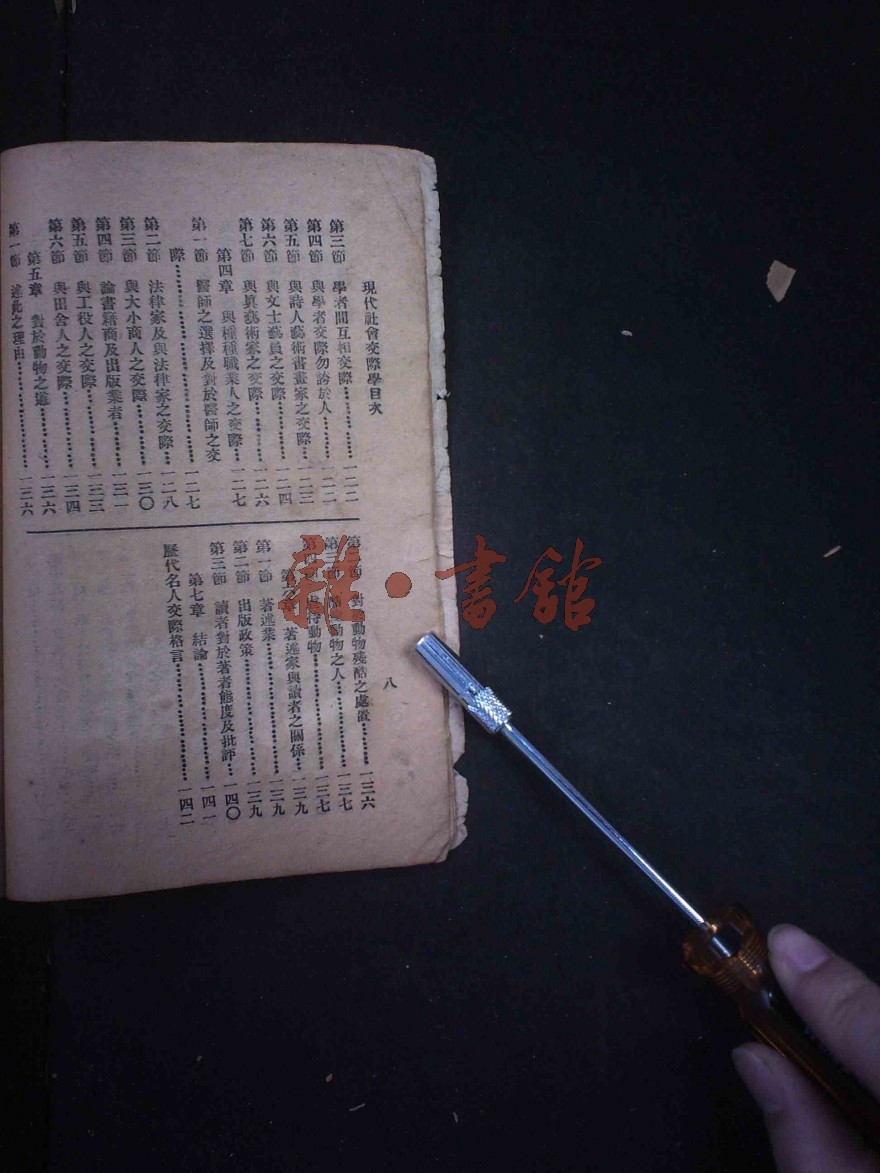 現代社會交際學目次
第三節 學者間互相交際…………一二二
第四節 與學者交際勿誇於人…………一二二
第五節 與詩人藝術書畫家之交際…………一二三
第六節 與文士藝員之交際…………一二四
第七節 與眞藝術家之交際…………一二六
第四章 與種種職業人之交際…………一二七
第一節 醫師之選擇及對於醫師之交
際…………一二七
第二節 法律家及與法律家之交際…………一二八
第三節 與大小商人之交際…………一三〇
第四節 論書籍商及出版業者…………一三一
第五節 與工役人之交際…………一三三
第六節 與田舍人之交際…………一三四
第五章 對於動物之道…………一三六
第一節 述此之理由…………一三六
八
第 節 對 動物殘酷之處置…………一三六
第三節 動物之人…………一三七
動物…………一三七
第 章 著述家與讀者之關係…………一三九
第一節 著述業…………一三九
第二節 出版政策…………一三九
第三節 讀者對於著者態度及批評…………一四〇
第七章 結論…………一四一
歷代名人交際格言…………一四二
雜·書館